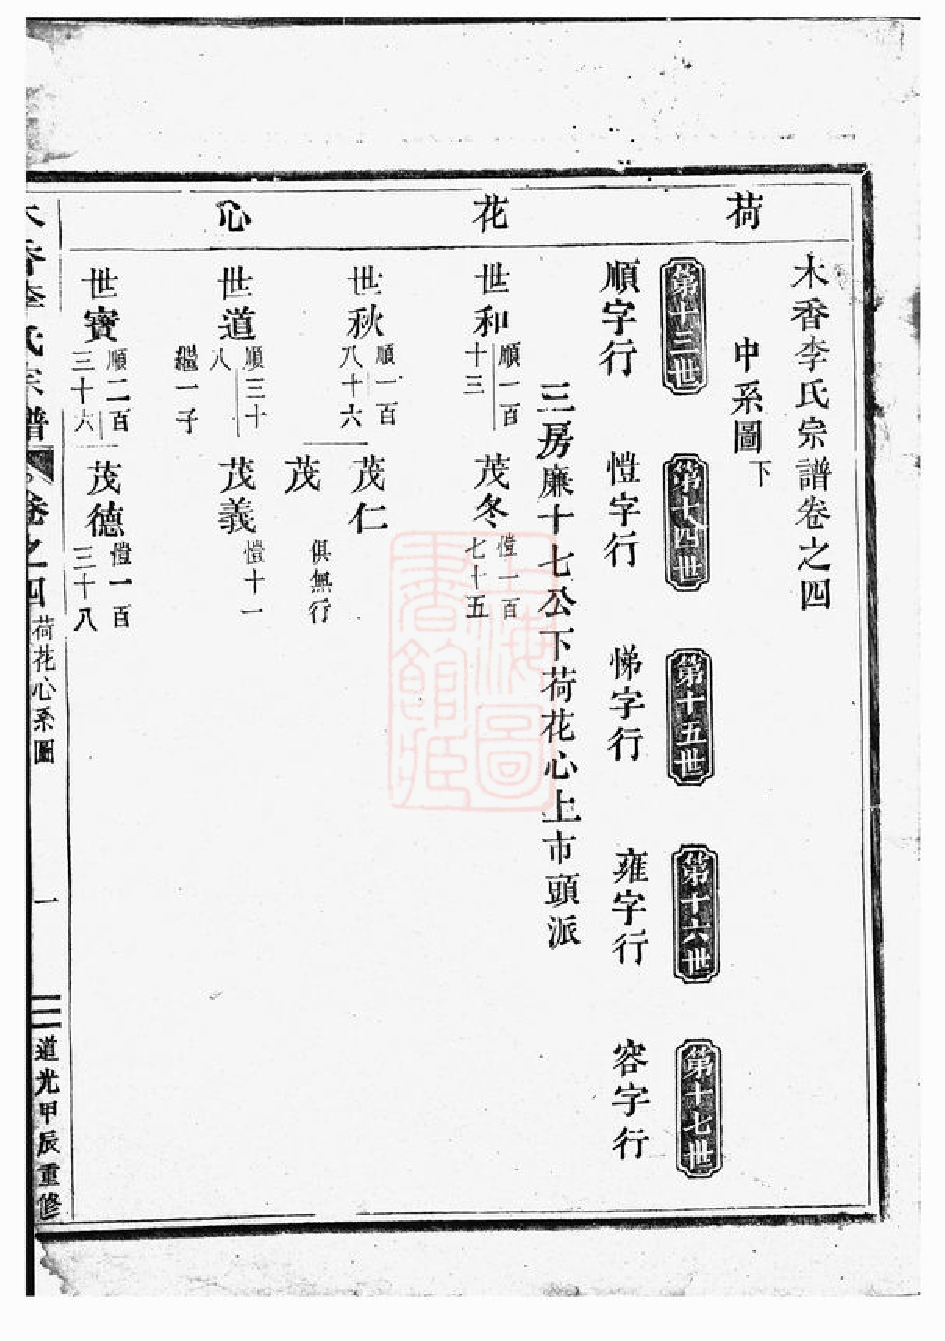 荷花心
木香李氏宗譜卷之四
中系圖下
第十三世 第十四世 第十五世 第十六世 第十七世
順字行 愷字行 悌字行 雍字行 容字行
三房廉十七公下荷花心上市頭派
世和 順一百十三 茂冬 愷一百七十五
世秋 順一百八十六 茂仁
茂 俱無行
世道 順三十八 繼一子 茂義 愷十一
世寶 順二百三十六 茂德 愷一百三十八
木香李氏宗譜 卷之四 荷花心系圖 一 道光甲辰重修
上海圖書館藏